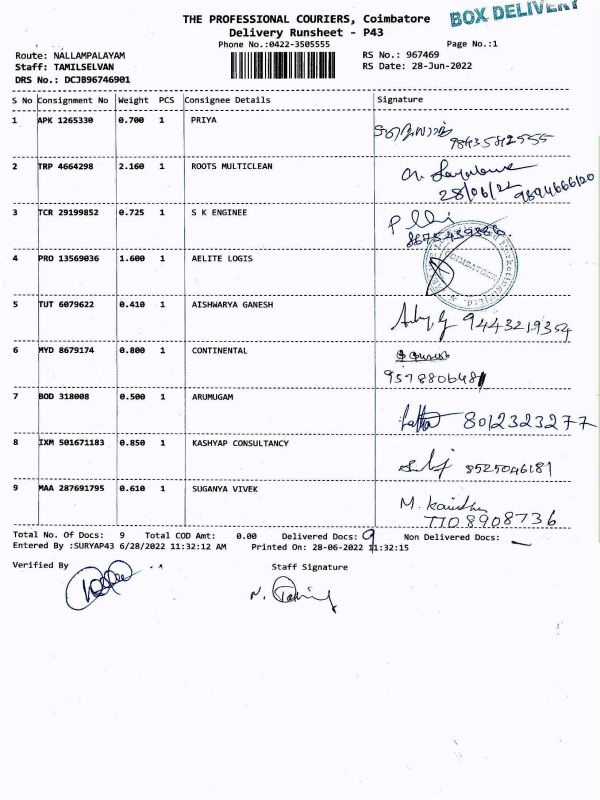 BOX DELIVERY
THE PROFESSIONAL COURIERS, Coimbatore
Delivery Runsheet - P43
Phone No.:0422-3505555
Page No.:1
Route: NALLAMPALAYAM
RS No.: 967469
Staff: TAMILSELVAN
RS Date: 28-Jun-2022
DRS No.: DCJB96746901
S No Consignment No Weight PCS Consignee Details Signature
1 APK 1265330 0.700 1 PRIYA
2 TRP 4664298 2.160 1 ROOTS MULTICLEAN
28/06/22 9894666620
3 TCR 29199852 0.725 1 S K ENGINEE
4 PRO 13569036 1.600 1 AELITE LOGIS
COIMBATORE
5 TUT 6079622 0.410 1 AISHWARYA GANESH
9443219354
6 MYD 8679174 0.800 1 CONTINENTAL
9578806481
7 BOD 318008 0.500 1 ARUMUGAM
8012323277
8 IXM 501671183 0.850 1 KASHYAP CONSULTANCY
8525046181
9 MAA 287691795 0.610 1 SUGANYA VIVEK
M.
7708908736
Total No. Of Docs: 9 Total COD Amt: 0.00 Delivered Docs: 9 Non Delivered Docs: –
Entered By :SURYAP43 6/28/2022 11:32:12 AM Printed On: 28-06-2022 11:32:15
Verified By Staff Signature